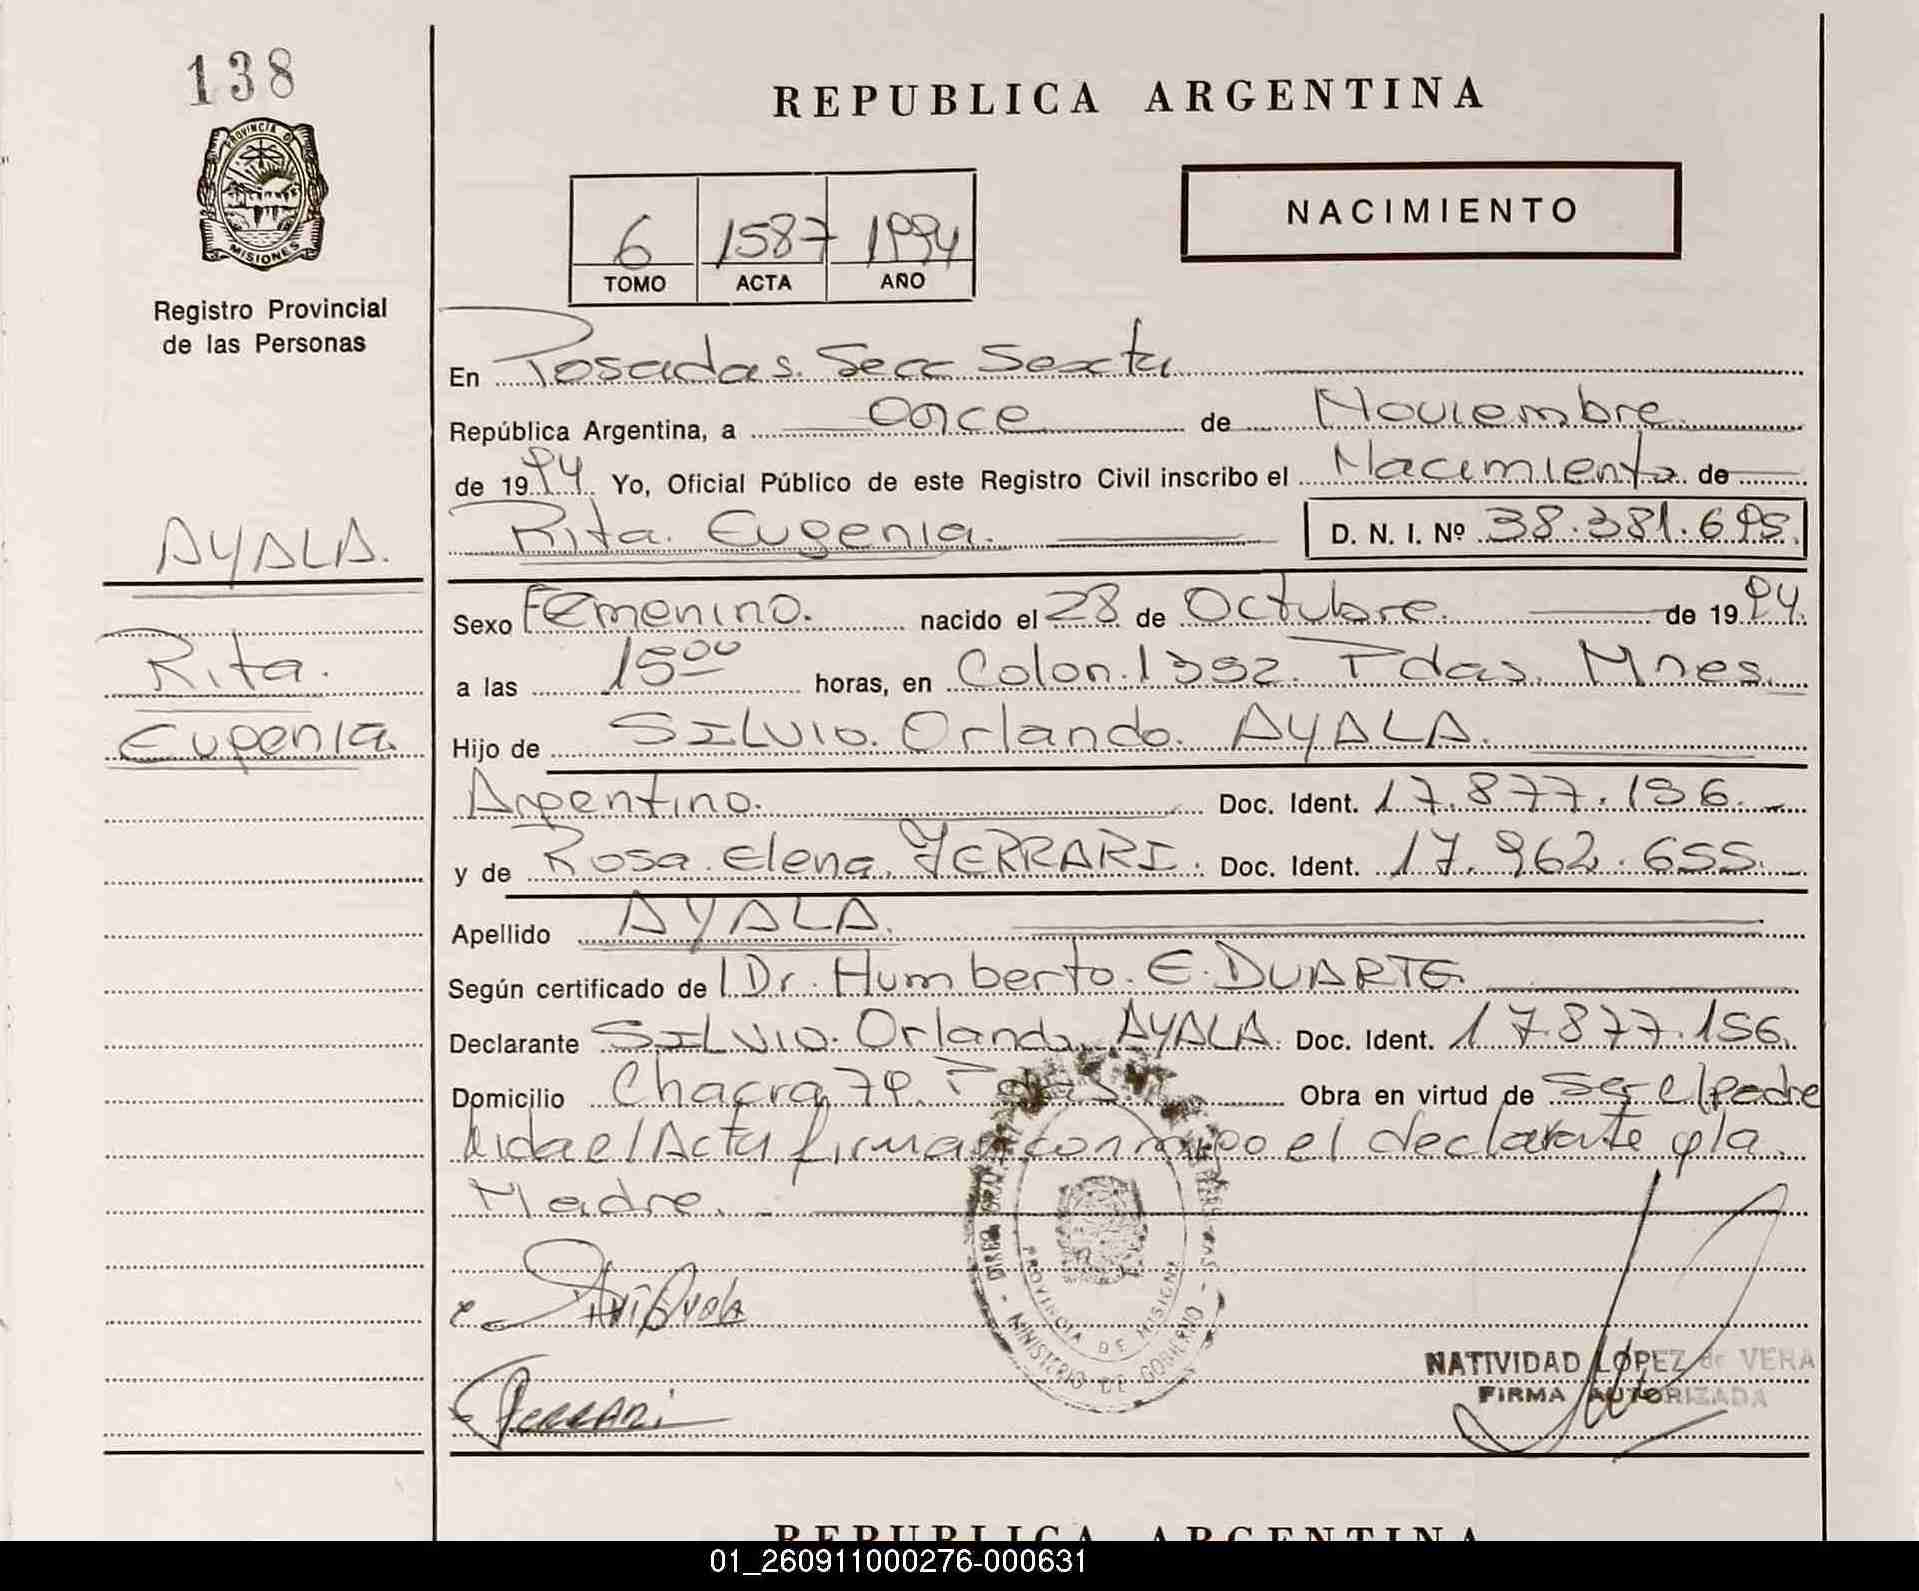 138
PROVINCIA D
MISIONES
Registro Provincial
de las Personas
REPUBLICA ARGENTINA
6 1587 1994
TOMO ACTA AÑO
NACIMIENTO
En Posadas. Secc Sexta
República Argentina, a once de Noviembre
de 1994 Yo, Oficial Público de este Registro Civil inscribo el Nacimiento de
Rita. Eugenia. D. N. I. Nº 38.381.695.
AYALA.
Rita.
Eugenia.
Sexo Femenino. nacido el 28 de Octubre. de 1994.
a las 15 00 horas, en Colon. 1392. Pdas. Mnes.
Hijo de SILVIO. Orlando. AYALA.
Argentino. Doc. Ident. 17.877.156.
y de Rosa. Elena. FERRARI. Doc. Ident. 17.962.655.
Apellido AYALA.
Según certificado de Dr. Humberto. E. DUARTE.
Declarante SILVIO. Orlando. AYALA. Doc. Ident. 17.877.156.
Domicilio Chacra 79. Pdas. Obra en virtud de Ser el padre
leida el Acta firman conmigo el declarante y la
Madre.
PROVINCIA DE MISIONES
MINISTERIO DE GOBIERNO
Ferrari
NATIVIDAD LOPEZ de VERA
FIRMA AUTORIZADA
REPUBLICA ARGENTINA
01_260911000276-000631